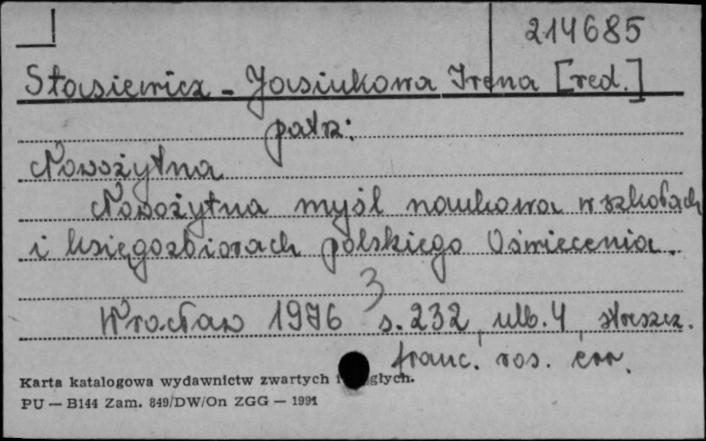 214685
Stasiewicz - Jasiukowa Irena [red.]
patrz:
Nowożytna
Nowożytna myśl naukowa w szkołach
i księgozbiorach polskiego Oświecenia.
Wrocław 1976 s. 232, nlb. 4, streszcz.
3
franc. ros. err.
Karta katalogowa wydawnictw zwartych i ciągłych.
PU — B144 Zam. 849/DW/On ZGG — 1991